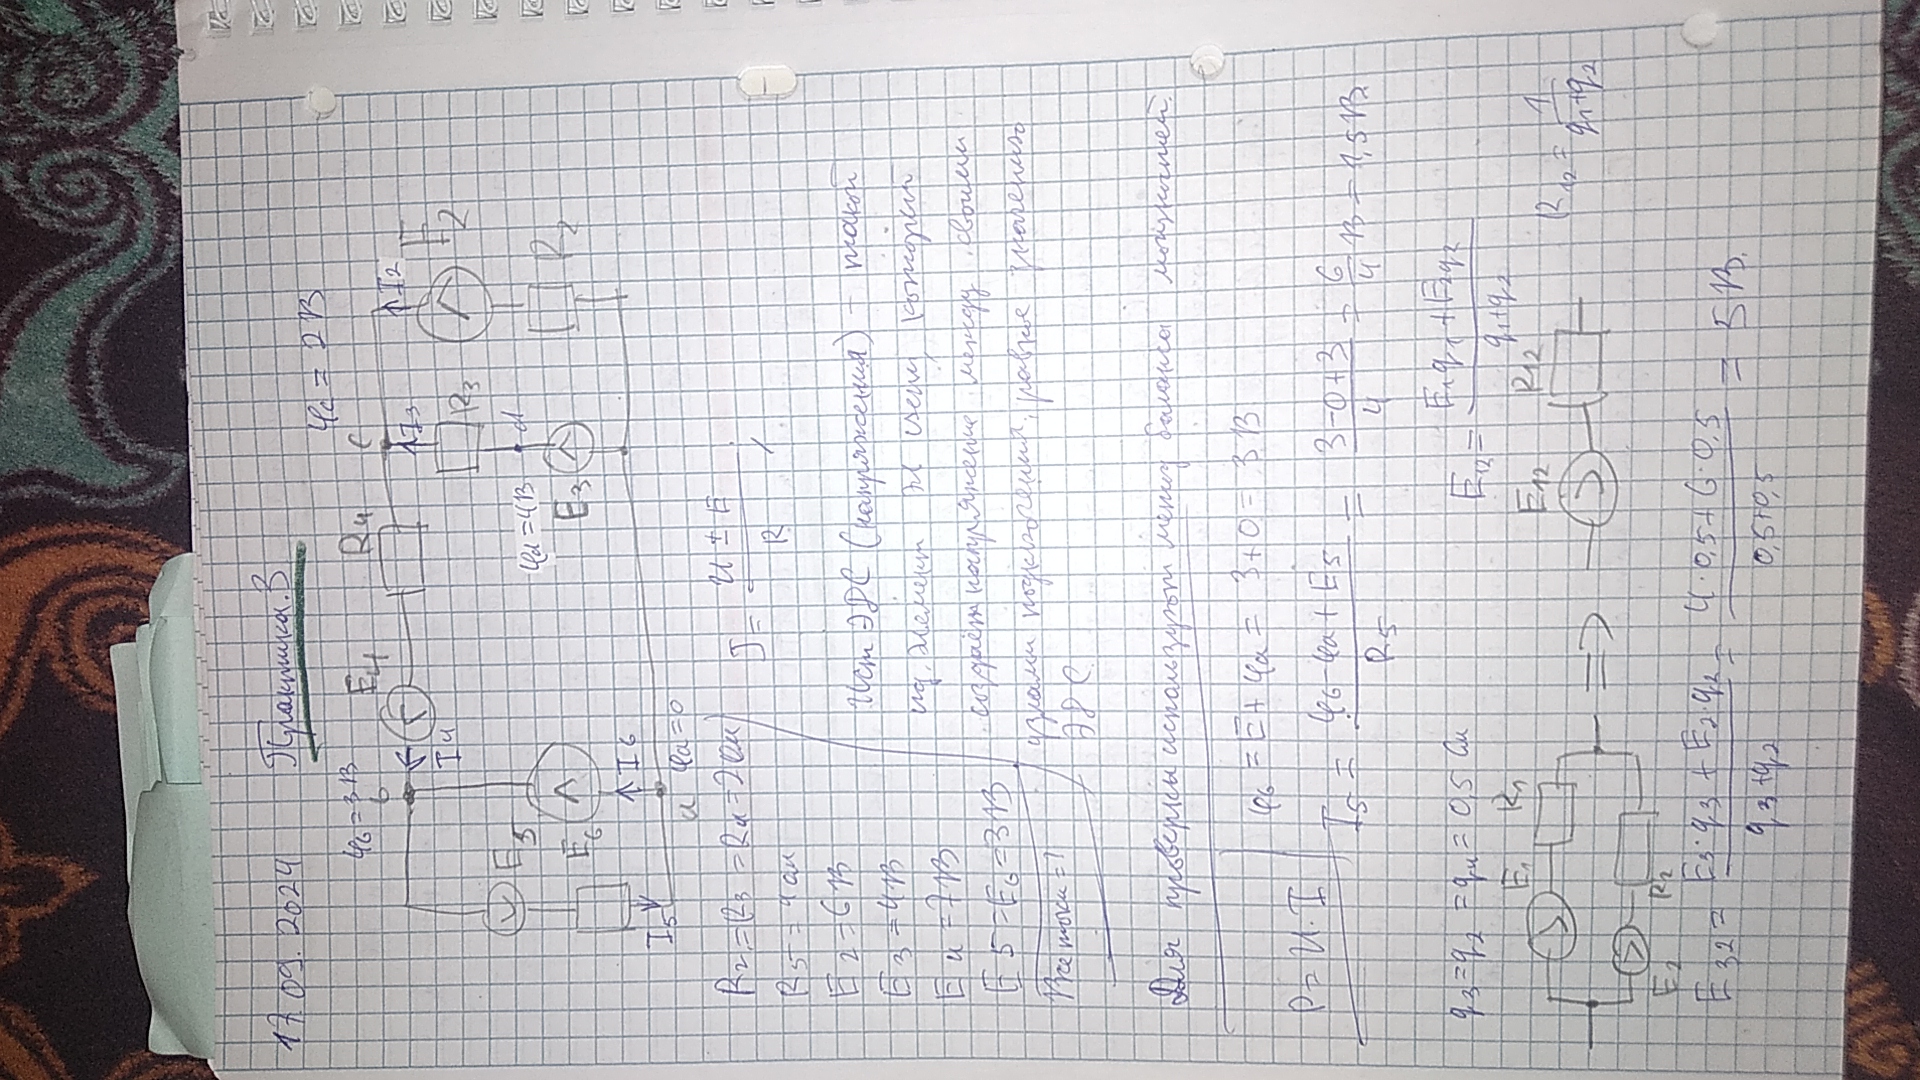 17.09.2024 Практика.3
φc = 2В
φб = 3В
б E4 R4 c
I4 I3 I2
E5 R3 E2
φd = 4В d
E6 E3 R2
I5 I6
a φa = 0
R2 = R3 = R4 = 2 Ом
R5 = 4 Ом
E2 = 6В
E3 = 4В
E4 = 7В
E5 = E6 = 3В
Все токи = ?
J = (U ± E) / R
Ист ЭДС (напряжения) – такой
ид. элемент эл цепи, который
создаёт напряжение между своими
узлами подключения, равное значению
ЭДС.
Для проверки используют метод баланса мощностей.
P = U · I
φб = E + φa = 3 + 0 = 3В
I5 = (φб - φa + E5) / R5 = (3 - 0 + 3) / 4 = 6/4 В = 1,5 В
q3 = q2 = q4 = 0,5 См
E12 = (E1q1 + E2q2) / (q1 + q2)
E1 R1
E2 R2
=>
E12 R12
R12 = 1 / (q1 + q2)
E32 = (E3 · q3 + E2 · q2) / (q3 + q2) = (4 · 0,5 + 6 · 0,5) / (0,5 + 0,5) = 5 В.